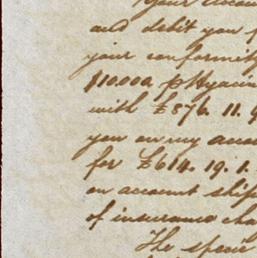 Your accou
and debit you f
your conformity
$10000 p Hyacin
with £876. 11. 9
you on my accou
for £614. 19. 1.
on account ship
of insurance cha
The specie